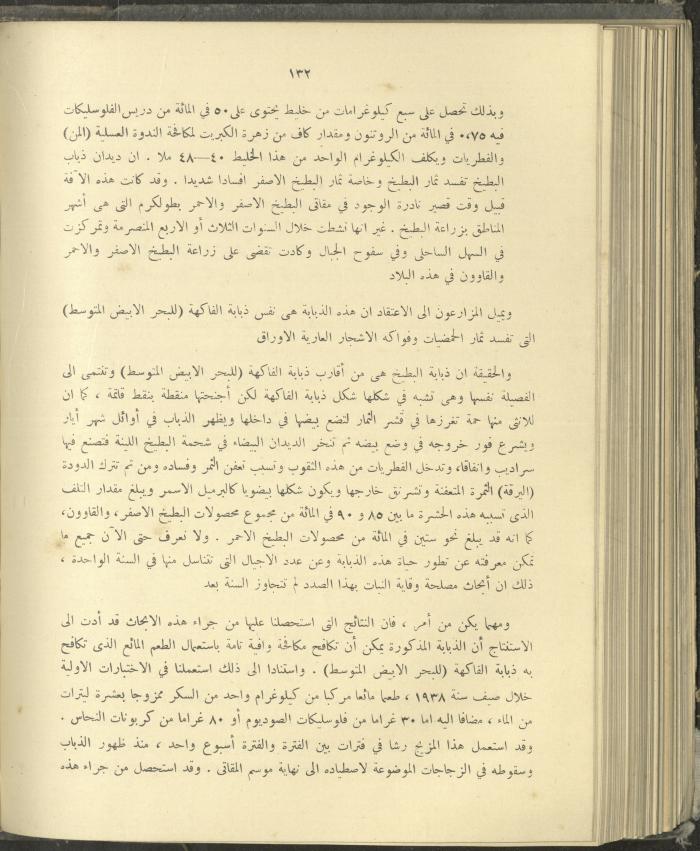 ١٣٢
وبذلك تحصل على سبع كيلوغرامات من خليط يحتوى على ٥٠ في المائة من دريس الفلوسليكات
فيه ٠،٧٥ في المائة من الروتنون ومقدار كاف من زهرة الكبريت لمكافحة الندوة العسلية (المن)
والفطريات ويكلف الكيلوغرام الواحد من هذا الخليط ٤٠—٤٨ ملا . ان ديدان ذباب
البطيخ تفسد ثمار البطيخ وخاصة ثمار البطيخ الاصفر افسادا شديدا . وقد كانت هذه الآفة
قبيل وقت قصير نادرة الوجود في مقاثى البطيخ الاصفر والاحمر بطولكرم التى هى أشهر
المناطق بزراعة البطيخ . غير انها نشطت خلال السنوات الثلاث أو الاربع المنصرمة وتمركزت
في السهل الساحلى وفي سفوح الجبال وكادت تقضى على زراعة البطيخ الاصفر والاحمر
والقاوون في هذه البلاد
ويميل المزارعون الى الاعتقاد ان هذه الذبابة هى نفس ذبابة الفاكهة (للبحر الابيض المتوسط)
التى تفسد ثمار الحمضيات وفواكه الاشجار العارية الاوراق
والحقيقة ان ذبابة البطيخ هى من أقارب ذبابة الفاكهة (للبحر الابيض المتوسط) وتنتمى الى
الفصيلة نفسها وهى تشبه في شكلها شكل ذبابة الفاكهة لكن أجنحتها منقطة بنقط قاتمة ، كما ان
للانثى منها حمة تغرزها في قشر الثمار لتضع بيضها في داخلها ويظهر الذباب في أوائل شهر أيار
ويشرع فور خروجه في وضع بيضه ثم تنخر الديدان البيضاء في شحمة البطيخ اللينة فتصنع فيها
سراديب وانفاقا، وتدخل الفطريات من هذه الثقوب وتسبب تعفن الثمر وفساده ومن ثم تترك الدودة
(اليرقة) الثمرة المتعفنة وتشرنق خارجها ويكون شكلها بيضويا كالبرميل الاسمر ويبلغ مقدار التلف
الذى تسببه هذه الحشرة ما بين ٨٥ و ٩٠ في المائة من مجموع محصولات البطيخ الاصفر، والقاوون،
كما انه قد يبلغ نحو ستين في المائة من محصولات البطيخ الاحمر . ولا نعرف حتى الآن جميع ما
تمكن معرفته عن تطور حياة هذه الذبابة وعن عدد الاجيال التى تتناسل منها في السنة الواحدة ،
ذلك ان أبحاث مصلحة وقاية النبات بهذا الصدد لم تتجاوز السنة بعد
ومهما يكن من أمر ، فان النتائج التى استحصلنا عليها من جراء هذه الابحاث قد أدت الى
الاستنتاج أن الذبابة المذكورة يمكن أن تكافح مكافحة وافية تامة باستعمال الطعم المائع الذى تكافح
به ذبابة الفاكهة (للبحر الابيض المتوسط) . واستنادا الى ذلك استعملنا في الاختبارات الاولية
خلال صيف سنة ١٩٣٨ ، طعما مائعا مركبا من كيلوغرام واحد من السكر ممزوجا بعشرة ليترات
من الماء ، مضافا اليه اما ٣٠ غراما من فلوسليكات الصوديوم أو ٨٠ غراما من كربونات النحاس .
وقد استعمل هذا المزيج رشا في فترات بين الفترة والفترة أسبوع واحد ، منذ ظهور الذباب
وسقوطه في الزجاجات الموضوعة لاصطياده الى نهاية موسم المقاثى . وقد استحصل من جراء هذه